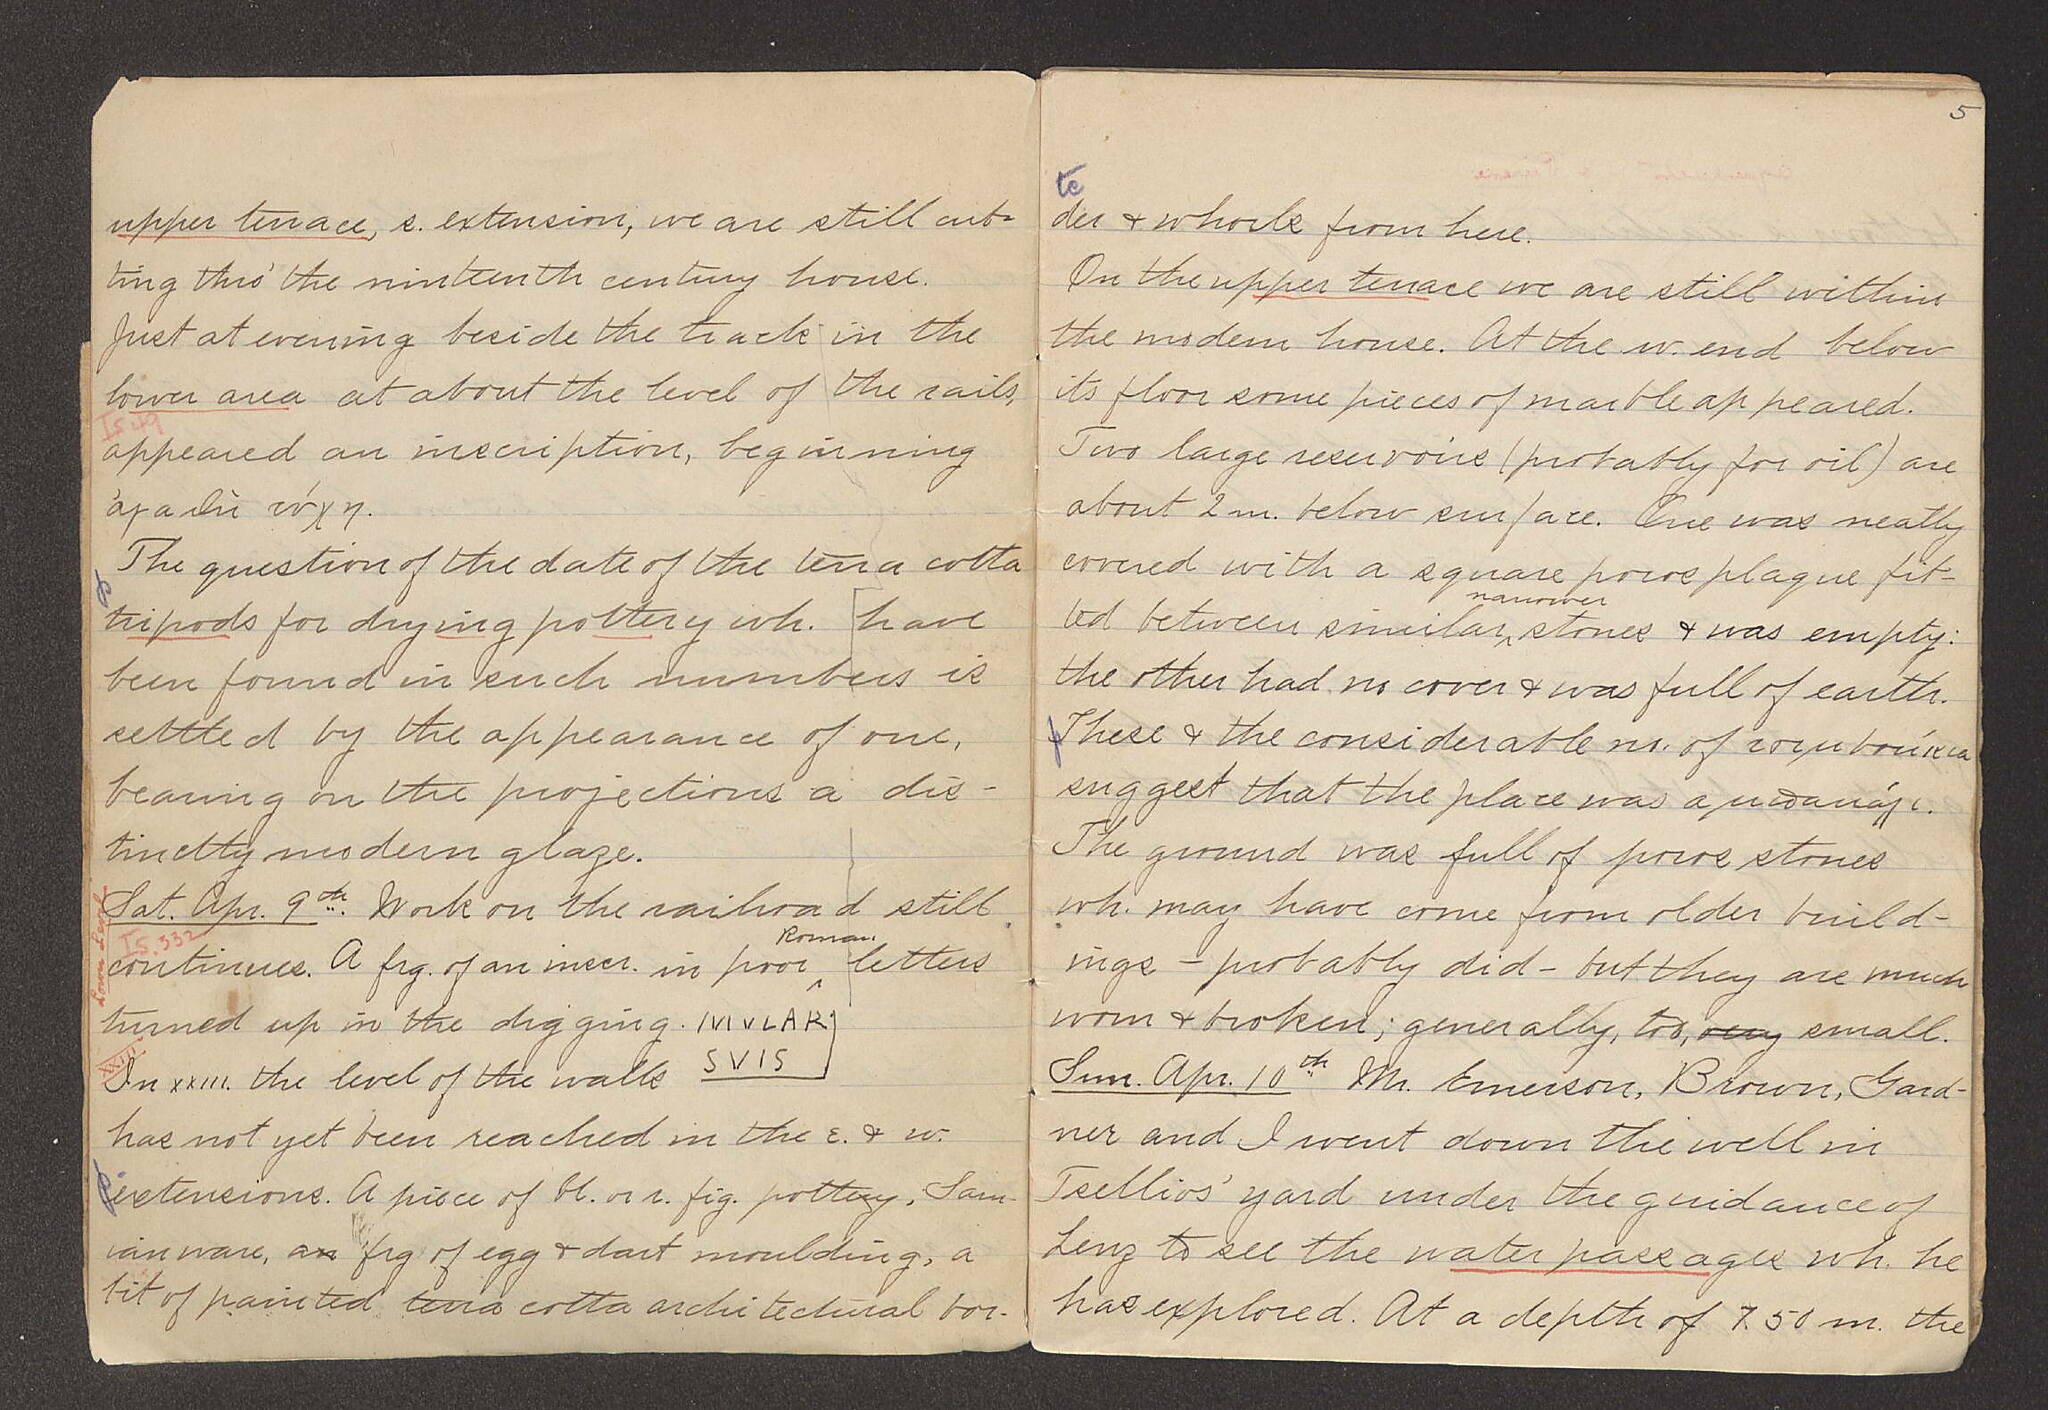 upper terrace, s. extension, we are still cut-
ting thro' the nineteenth century house.
Just at evening beside the track in the
lower area at about the level of the rails,
IS.49
appeared an inscription, beginning
ἀγαθὴ τύχη.
The question of the date of the terra cotta
tripods for drying pottery wh. [have
been found in such numbers is
settled by the appearance of one,
bearing on the projections a dis-
tinctly modern glaze.
Sat. Apr. 9th. Work on the railroad still
IS.332
Roman
continues. A frg. of an inscr. in poor letters
turned up in the digging. IVIVLAR
SVIS
XXIII
In XXIII. the level of the walls
has not yet been reached in the e. & w.
extensions. A piece of bl. or r. fig. pottery, Sam-
ian ware, an frg of egg & dart moulding, a
bit of painted terra cotta architectural bor-
5
tc
der & whorls from here.
On the upper terrace we are still within
the modern house. At the w. end below
its floor some pieces of marble appeared.
Two large reservoirs (probably for oil) are
about 2 m. below surface. One was neatly
covered with a square poros plaque fit-
narrower
ted between similar stones & was empty:
the other had no cover & was full of earth.
These & the considerable no. of
suggest that the place was a
The ground was full of poros stones
wh. may have come from older build-
ings – probably did – but they are much
worn & broken; generally, too, very small.
Sun. Apr. 10th Mr. Emerson, Brown, Gard-
ner and I went down the well in
Tsellios' yard under the guidance of
Lenz to see the water passages wh. he
has explored. At a depth of 7.50 m. the